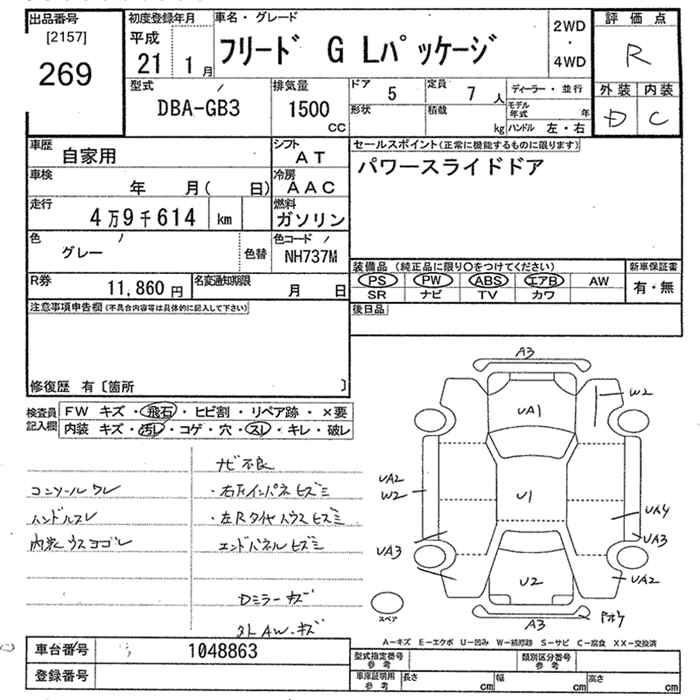 出品番号
[2157]
269
初度登録年月
平成
21 1月
車名・グレード
フリード G Lパッケージ
2WD
・
4WD
評価点
R
外装 内装
D C
型式
DBA-GB3
排気量
1500
CC
ドア 5
形状
定員 7 人
積載 kg
ディーラー・並行
モデル年式 年
ハンドル 左・右
車歴
自家用
シフト
AT
車検
年 月( 日)
冷房
AAC
走行
4万9千614 km
燃料
ガソリン
色
グレー
色替
色コード
NH737M
R券
11,860 円
名変通知期限
月 日
セールスポイント(正常に機能するものに限ります)
パワースライドドア
装備品 (純正品に限り〇をつけてください)
PS PW ABS エアB AW
SR ナビ TV カワ
新車保証書
有・無
後日品
注意事項申告欄(不具合内容等は具体的に記入して下さい)
修復歴 有〔箇所 〕
検査員
記入欄
FW キズ・飛石・ヒビ割・リペア跡・×要
内装 キズ・汚レ・コゲ・穴・スレ・キレ・破レ
ナビ不良
コンソールワレ
・右Fインパネヒズミ
ハンドルスレ
・左Rタイヤハウスヒズミ
内装ウスヨゴレ
エンドパネルヒズミ
Dミラーキズ
外AW・キズ
A3
W2
UA1
UA2
W2
U1
UA4
UA3
UA3
U2
UA2
A3
スペア
A−キズ E−エクボ U−凹み W−補修跡 S−サビ C−腐食 XX−交換済
車台番号
1048863
登録番号
型式指定番号
参考
類別区分番号
参考
車庫証明用
参考
長さ cm
幅 cm
高さ cm